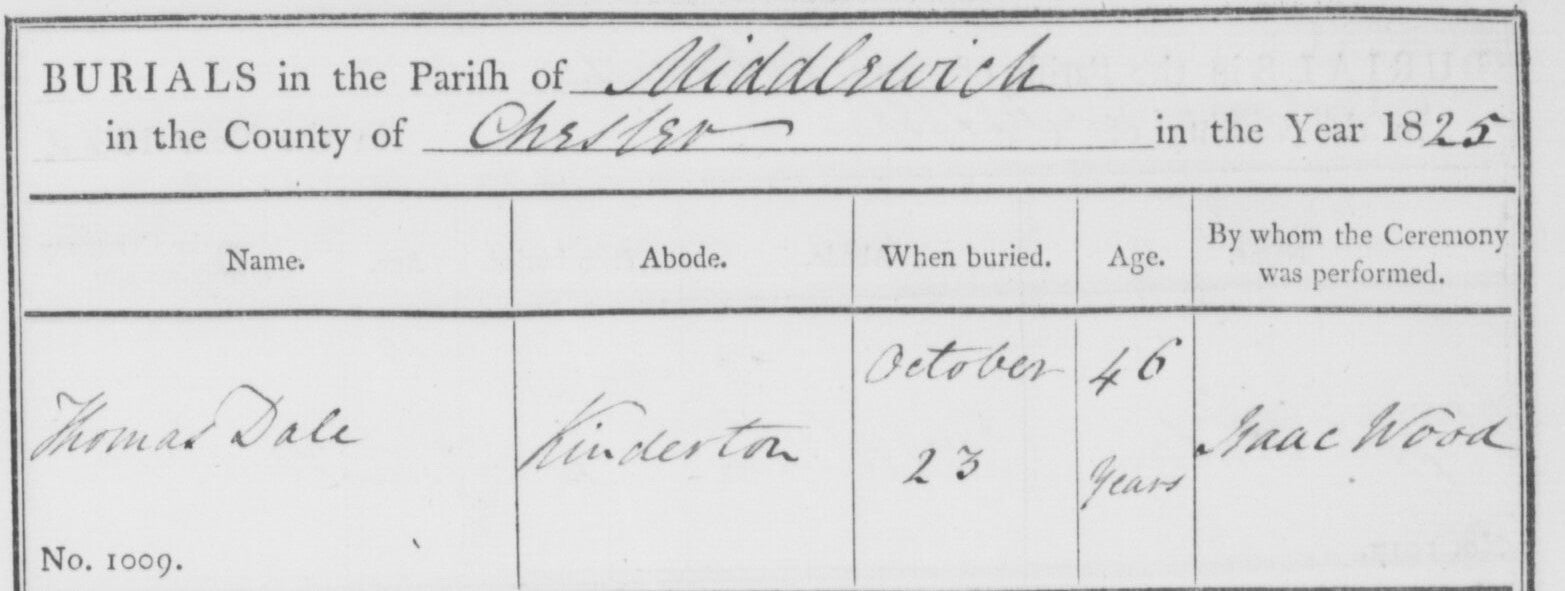 BURIALS in the Pariſh of Middlewich
in the County of Chester in the Year 1825
Name.
Abode.
When buried.
Age.
By whom the Ceremony
was performed.
Thomas Dale
Kinderton
October
23
46
Years
Isaac Wood
No. 1009.